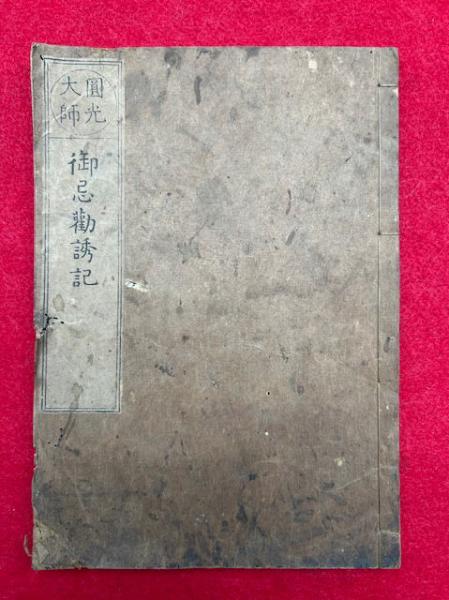 圓光
大師
御忌勸誘記